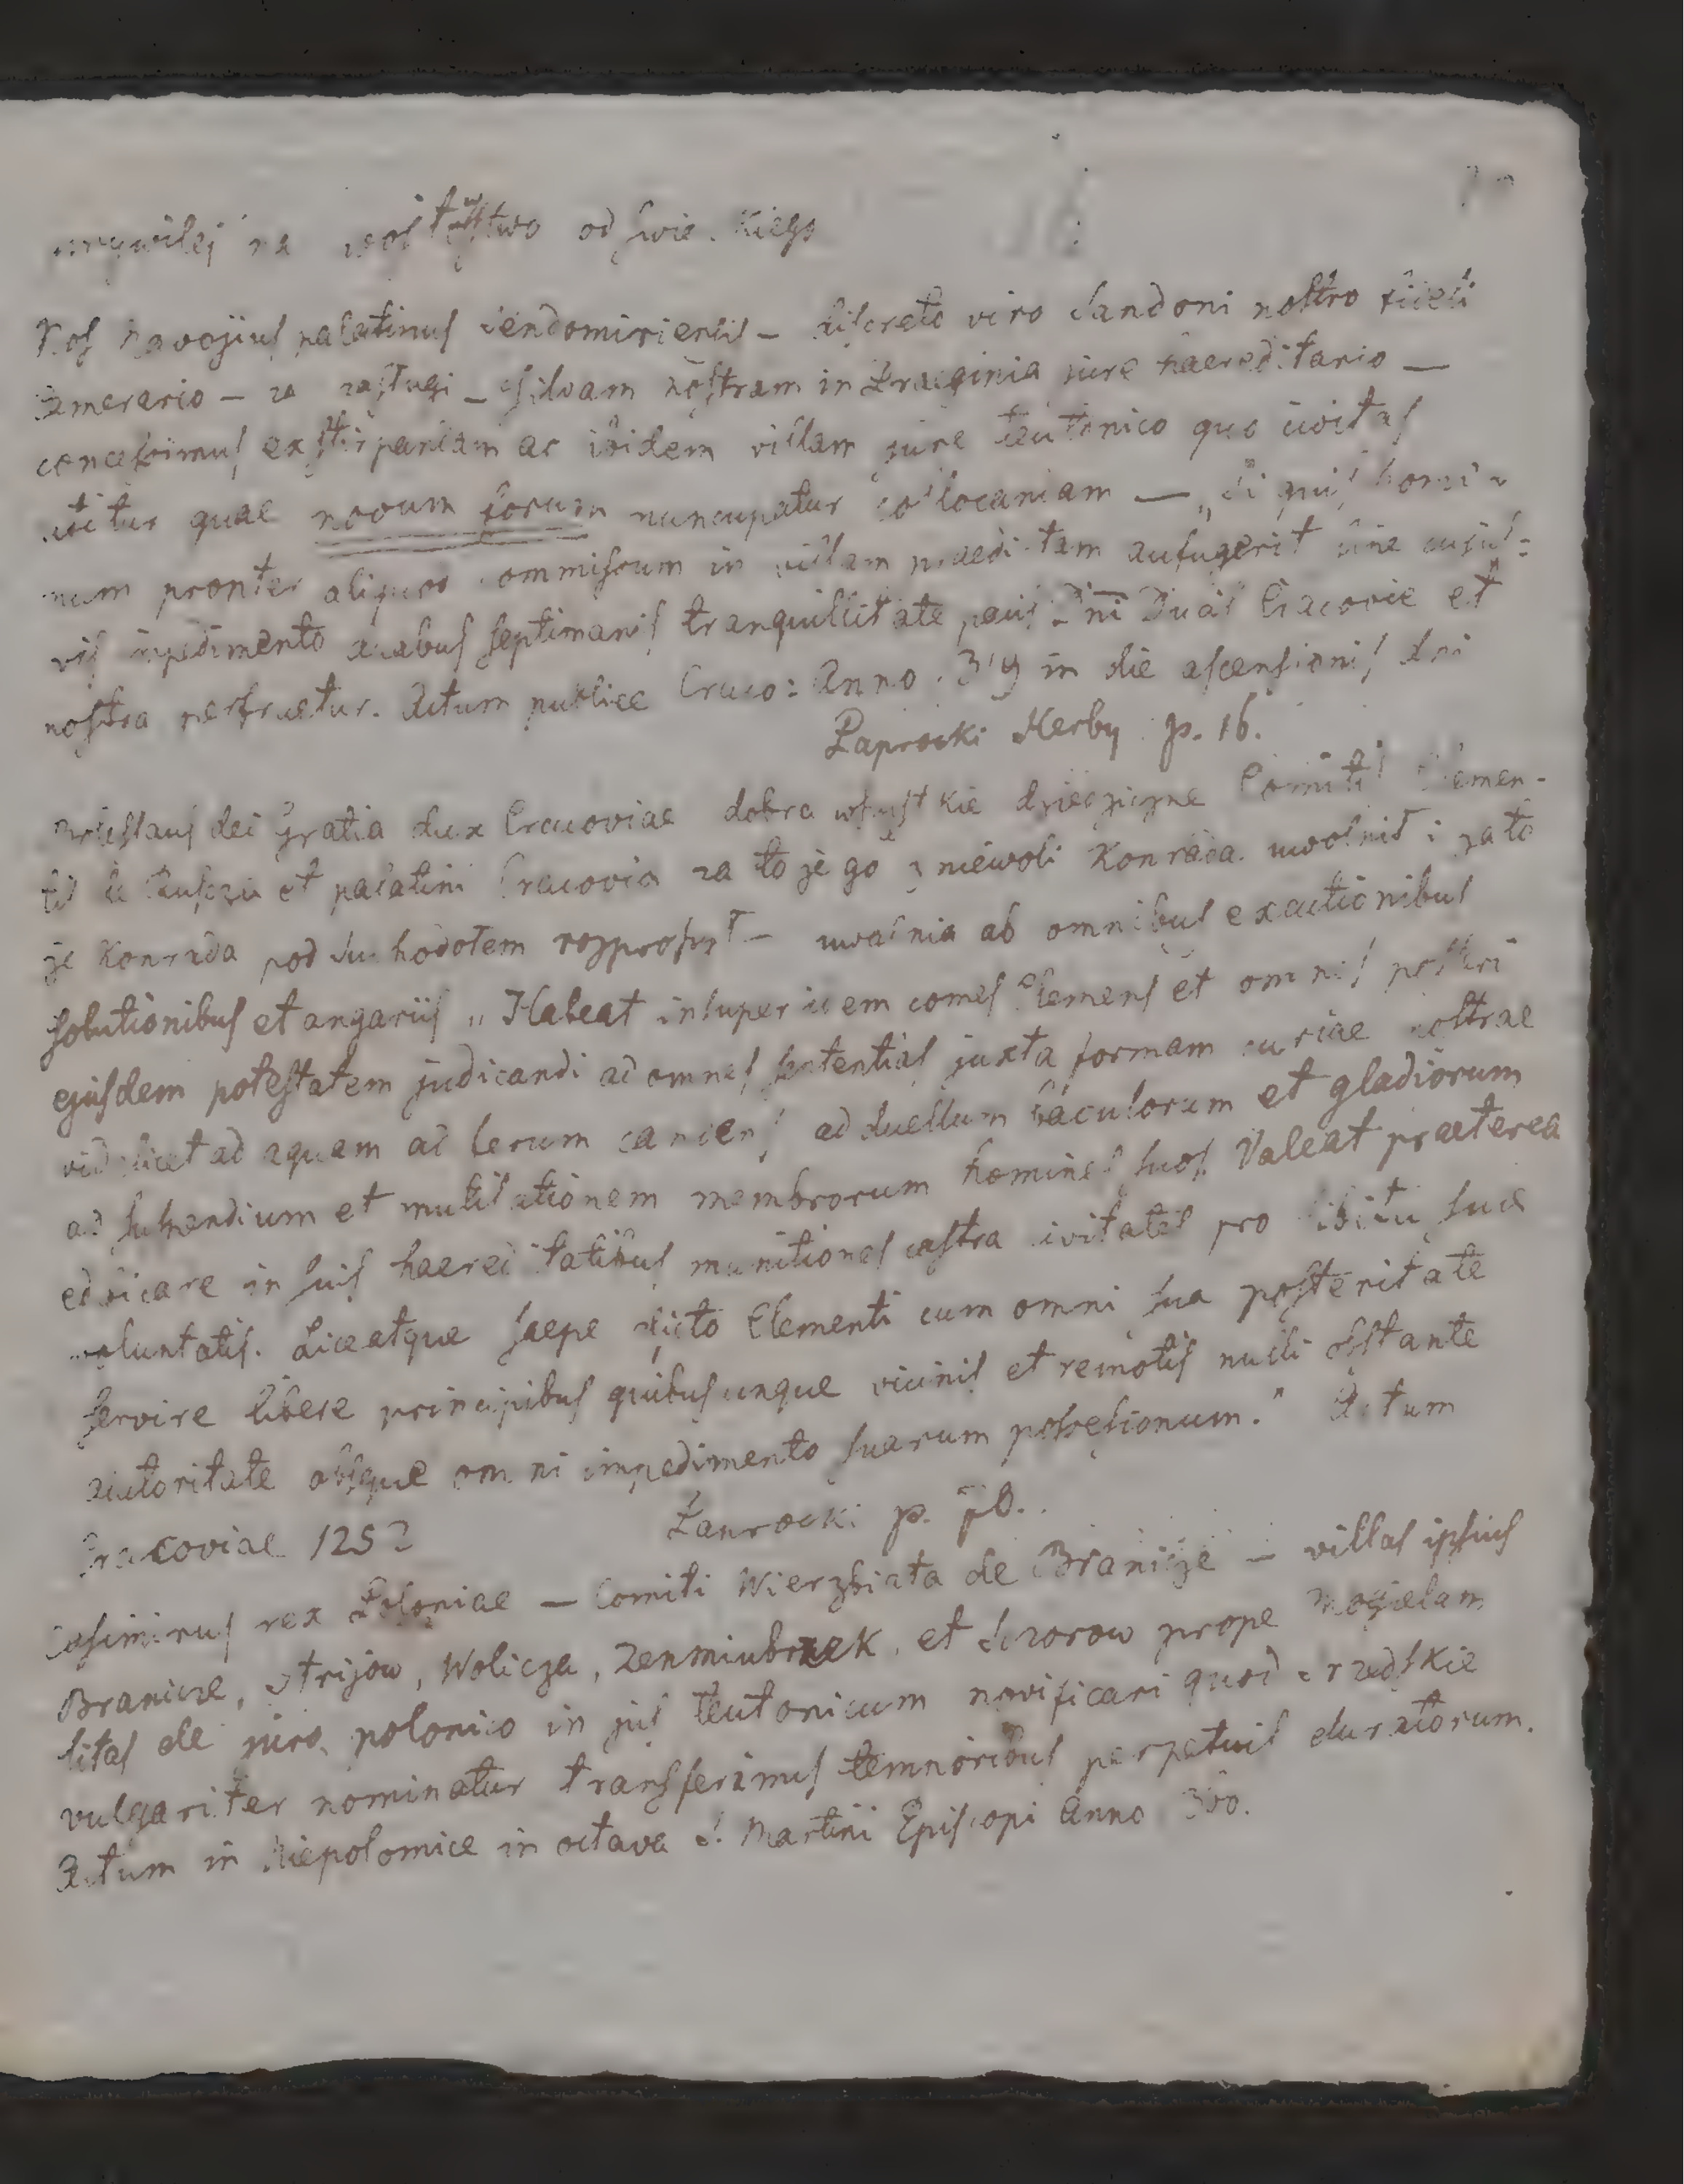 na od
Nos Navojius palatinus Sendomiriensis – discreto viro Sandoni nostro fideli
camerario – za zasługi – silvam nostram in jure haereditario –
concessimus exstirpandam ac ibidem villam jure teutonico quo civitas
utitur quae novum forum nuncupatur collocandam – „Si quis homi-
num propter aliquod commissum in villam praedictam aufugerit sine cujus=
vis impedimento duabus septimanis tranquillitate pacis Dni Ducis Cracovie et
nostra perfruetur. Actum publice Craco: Anno in die ascensionis dni
Paprocki Herby p. 16.
dei gratia dux Cracoviae dobra wszystkie dziedziczne Comitis Clemen-
et palatini Cracovia za to że go z niewoli Konrada uwolnił i za to
że Konrada pod Suchodołem rozproszył – uwalnia ab omnibus exactionibus
solutionibus et angariis „Habeat insuper idem comes Clemens et omnis posteri
ejusdem potestatem judicandi ad omnes sententias juxta formam curiae nostrae
videlicet ad aquam ad ferum candens ad duellum baculorum et gladiorum
ad suspendium et mutilationem membrorum homines suos. Valeat praeterea
edificare in suis haereditatibus munitiones castra civitates pro libitu sue
voluntatis. Liceatque saepe dicto Clementi cum omni sua posteritate
servire libere principibus quibuscunque vicinis et remotis nulli obstante
autoritate absque omni impedimento suarum possesionum." Actum
Cracoviae 1252 Paprocki p.
Casimirus rex Poloniae – Comiti Wierzbiata de Branicze – villas ipsius
Branicze, Strijow, Wolicza, et prope Mogielam
sitas de jure polonico in jus teutonicum novificari quod srzedskie
vulgariter nominatur transferimus temporibus perpetuis duratorum.
Actum in Niepolomice in octava S. Martini Episcopi Anno